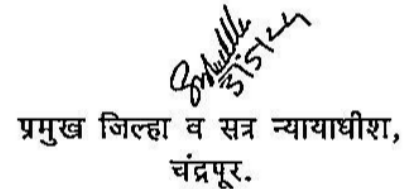 3/5/24
प्रमुख जिल्हा व सत्र न्यायाधीश,
चंद्रपूर.